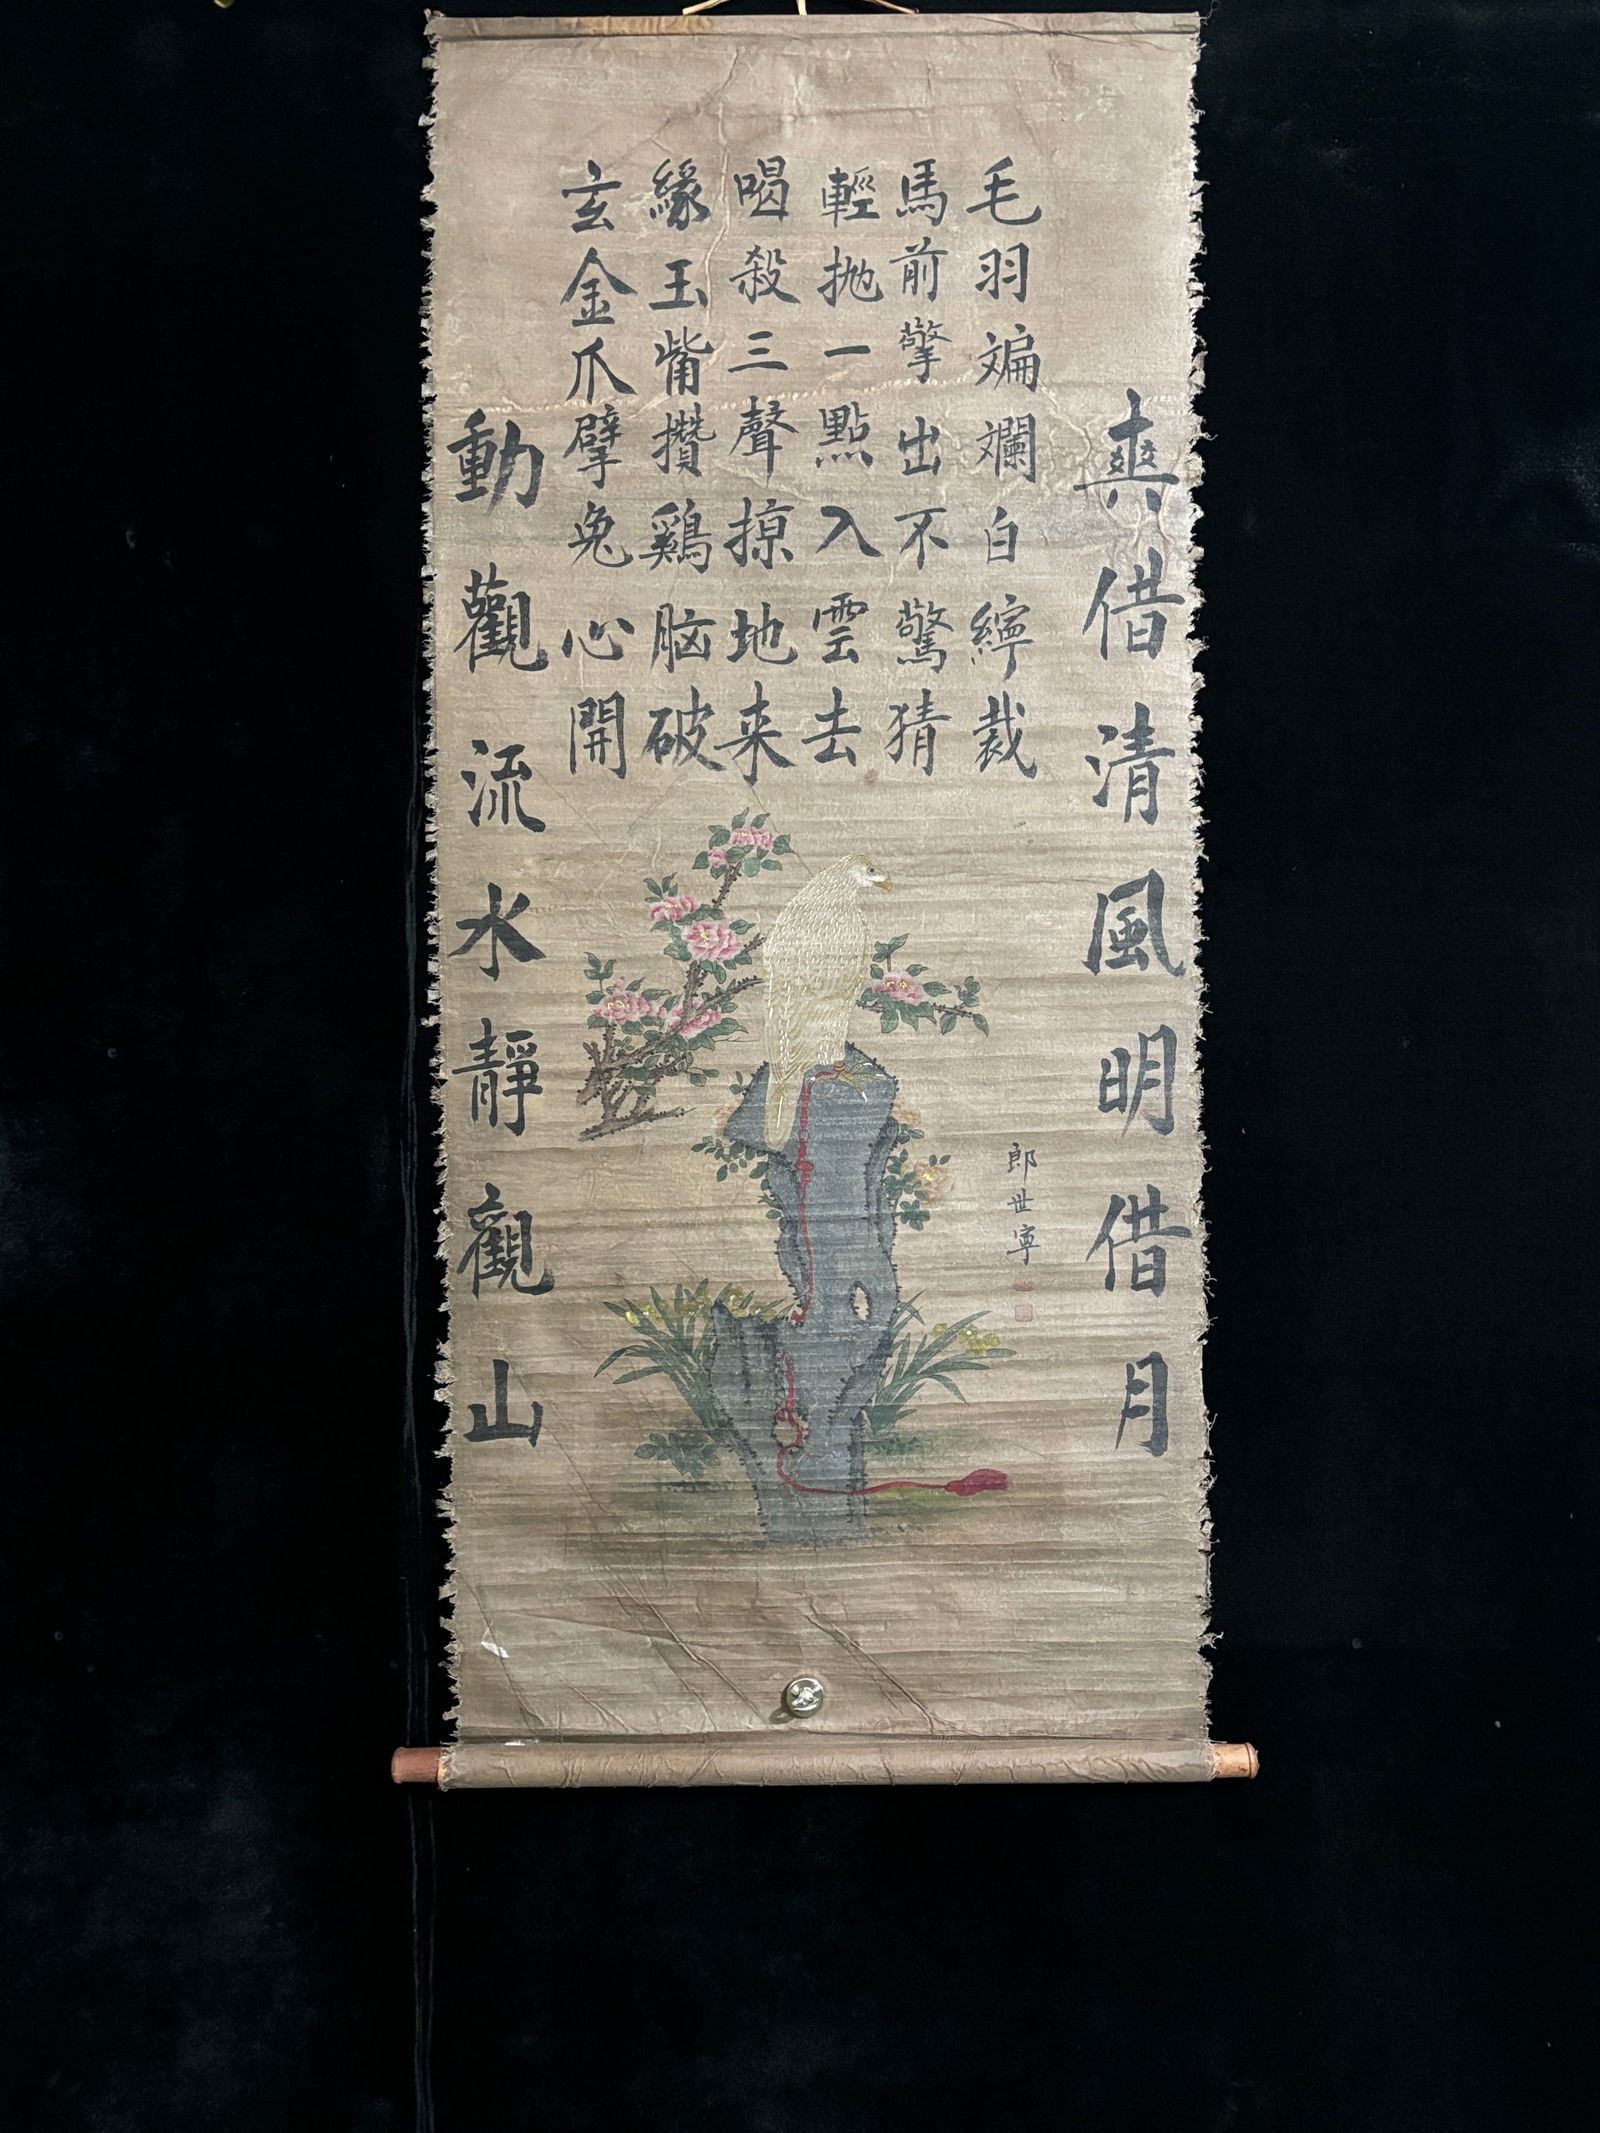 爽借清風明借月
毛羽斒斕白紵裁
馬前擎出不驚猜
輕拋一點入雲去
喝殺三聲掠地来
緣玉觜攢鷄脑破
玄金爪擘兔心開
動觀流水靜觀山
郎世寧